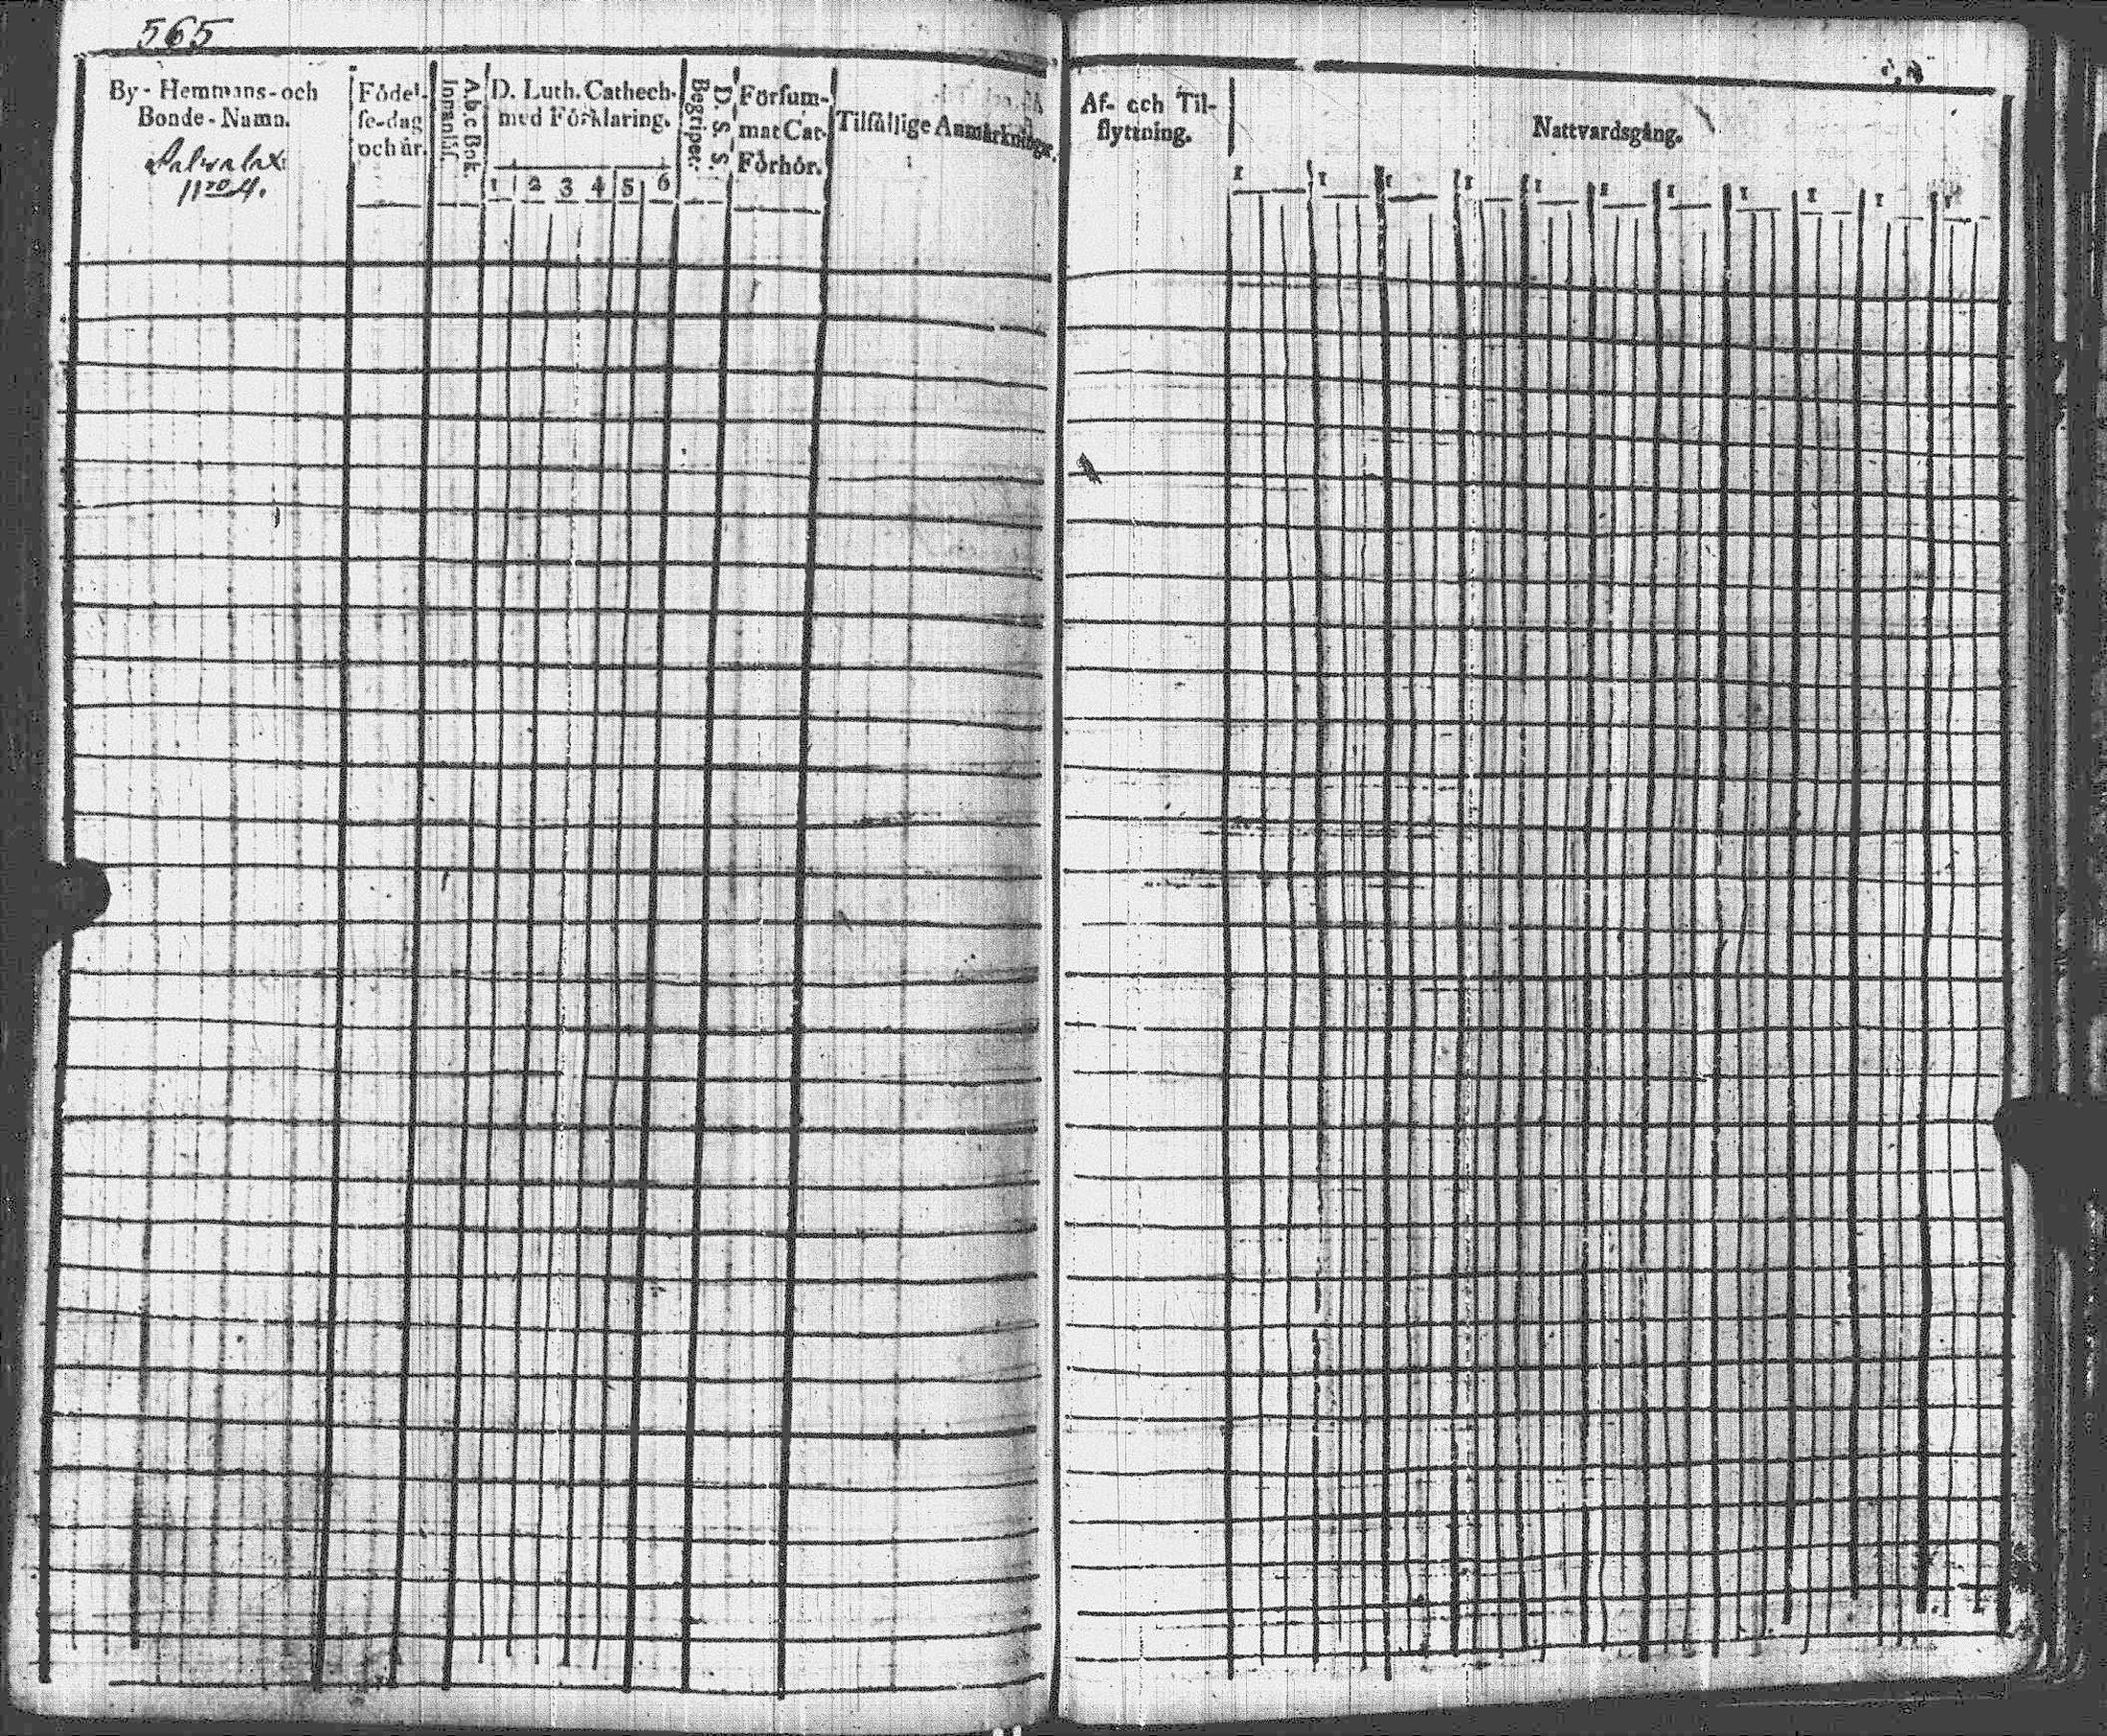 565
By-Hemmans-och
Bonde-Namn.
Nro 4.
Födel-
se-dag
och år.
A.b.c Bok.
Innanläs.
D. Luth. Cathech.
med Förklaring.
1 2 3 4 5 6
D. S. S.
Begriper.
Försum-
mat Cat.
Förhör.
Tilfällige Anmärkningar.
Af- och Til-
flyttning.
Nattvardsgång.
1 1 1 1 1 1 1 1 1 1 1